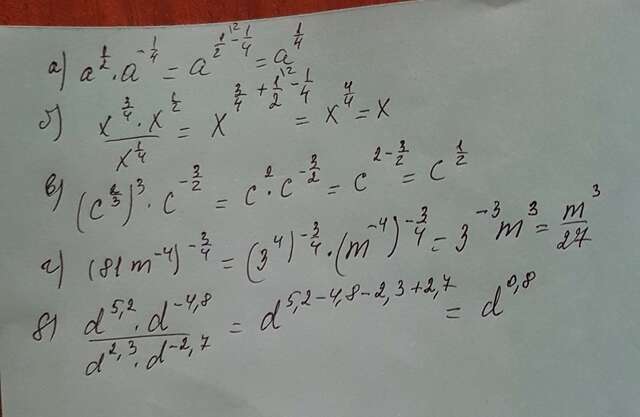 а) a^{1/2} · a^{-1/4} = a^{1/2^{\2} - 1/4} = a^{1/4}
б) (x^{3/4} · x^{1/2}) / x^{1/4} = x^{3/4 + 1/2^{\2} - 1/4} = x^{4/4} = x
в) (c^{2/3})^3 · c^{-3/2} = c^2 · c^{-3/2} = c^{2 - 3/2} = c^{1/2}
г) (81m^{-4})^{-3/4} = (3^4)^{-3/4} · (m^{-4})^{-3/4} = 3^{-3} m^3 = m^3/27
д) (d^{5,2} · d^{-4,8}) / (d^{2,3} · d^{-2,7}) = d^{5,2-4,8-2,3+2,7} = d^{0,8}